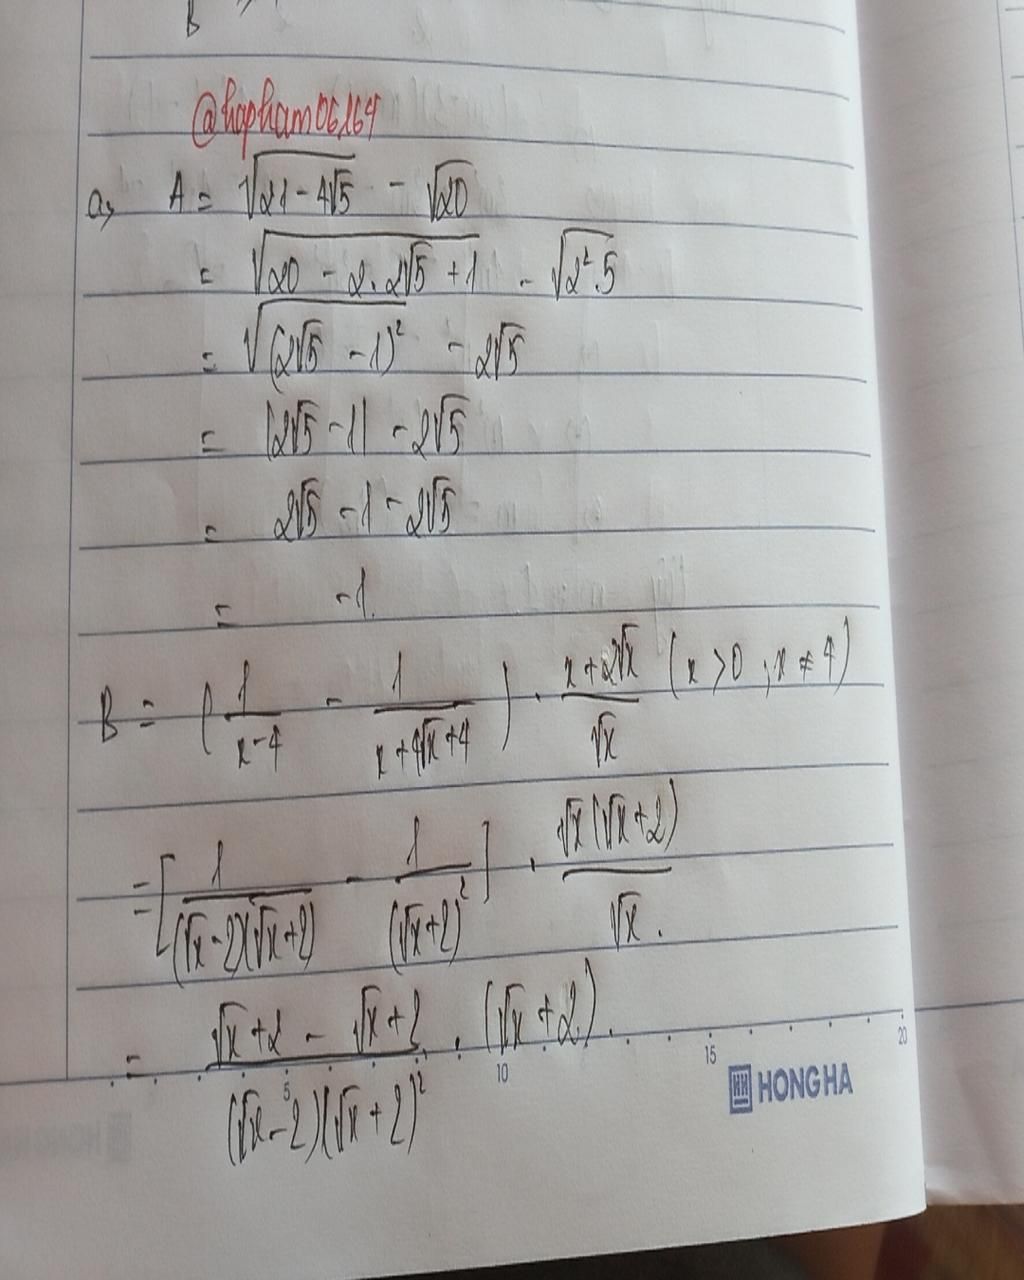 B
@hapham06164
a, A = √(21 - 4√5) - √20
= √(20 - 2.2√5 + 1) - √(2².5)
= √((2√5 - 1)²) - 2√5
= |2√5 - 1| - 2√5
= 2√5 - 1 - 2√5
= -1.
B = (1/(x-4) - 1/(x+4√x+4)) . (x+2√x)/√x (x > 0 ; x ≠ 4)
= [1/((√x-2)(√x+2)) - 1/(√x+2)²] . √x(√x+2)/√x.
= (√x+2 - √x+2)/((√x-2)(√x+2)²) . (√x+2).
5 10 15 20
HONG HA